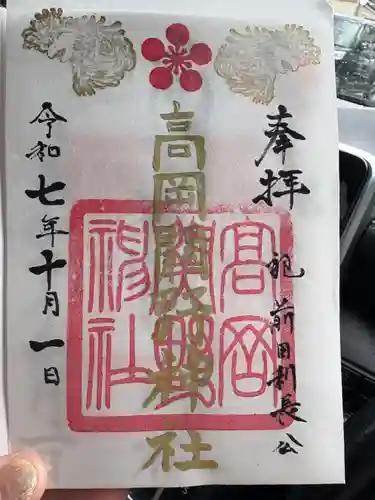 奉拝
祀 前田利長公
高岡関野神社
高岡
関野
神社
令和七年十月一日